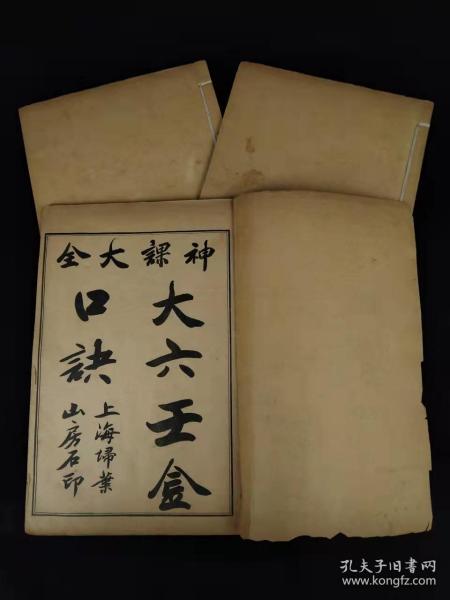 神課大全
大六壬金
口訣
上海埽葉
山房石印
孔夫子旧书网
www.kongfz.com